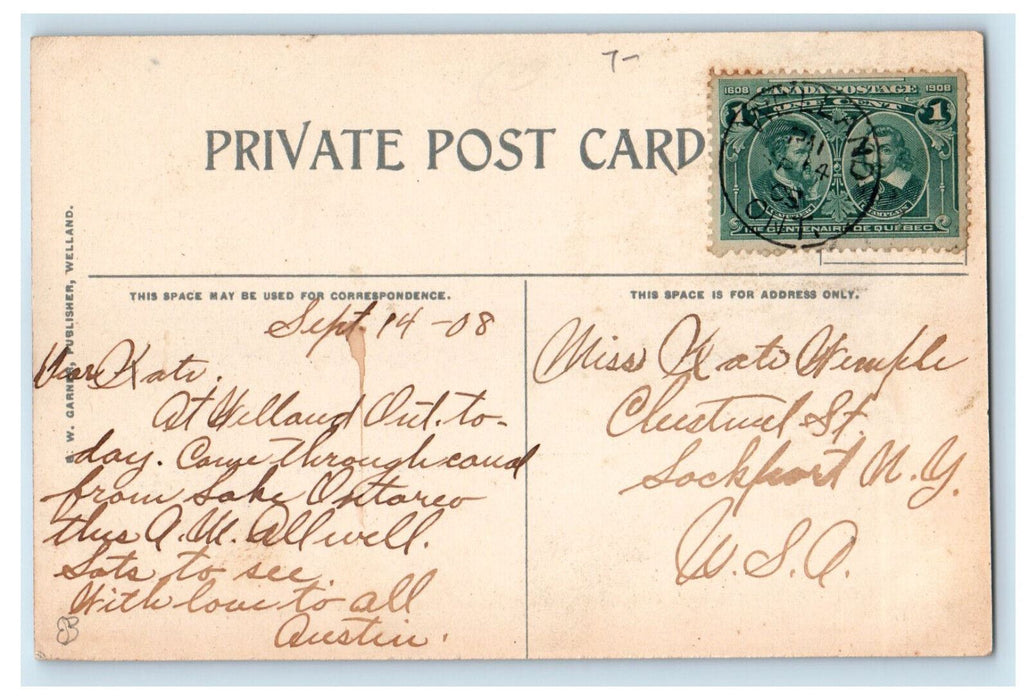 7-
PRIVATE POST CARD
1608 CANADA POSTAGE 1908
1 ONE CENT 1
CARTIER CHAMPLAIN
IIIE CENTENAIRE DE QUÉBEC
WELLAND
14
ONT.
THIS SPACE MAY BE USED FOR CORRESPONDENCE.
THIS SPACE IS FOR ADDRESS ONLY.
W. GARNER, PUBLISHER, WELLAND.
Sept. 14 -08
Dear Kate.
At Welland Ont. to-
day. Came through canal
from Lake Ontario
this A.M. All well.
Lots to see.
With love to all
Austin.
Miss Kate Wemple
Chestnut St.
Lockport N.Y.
U.S.A.